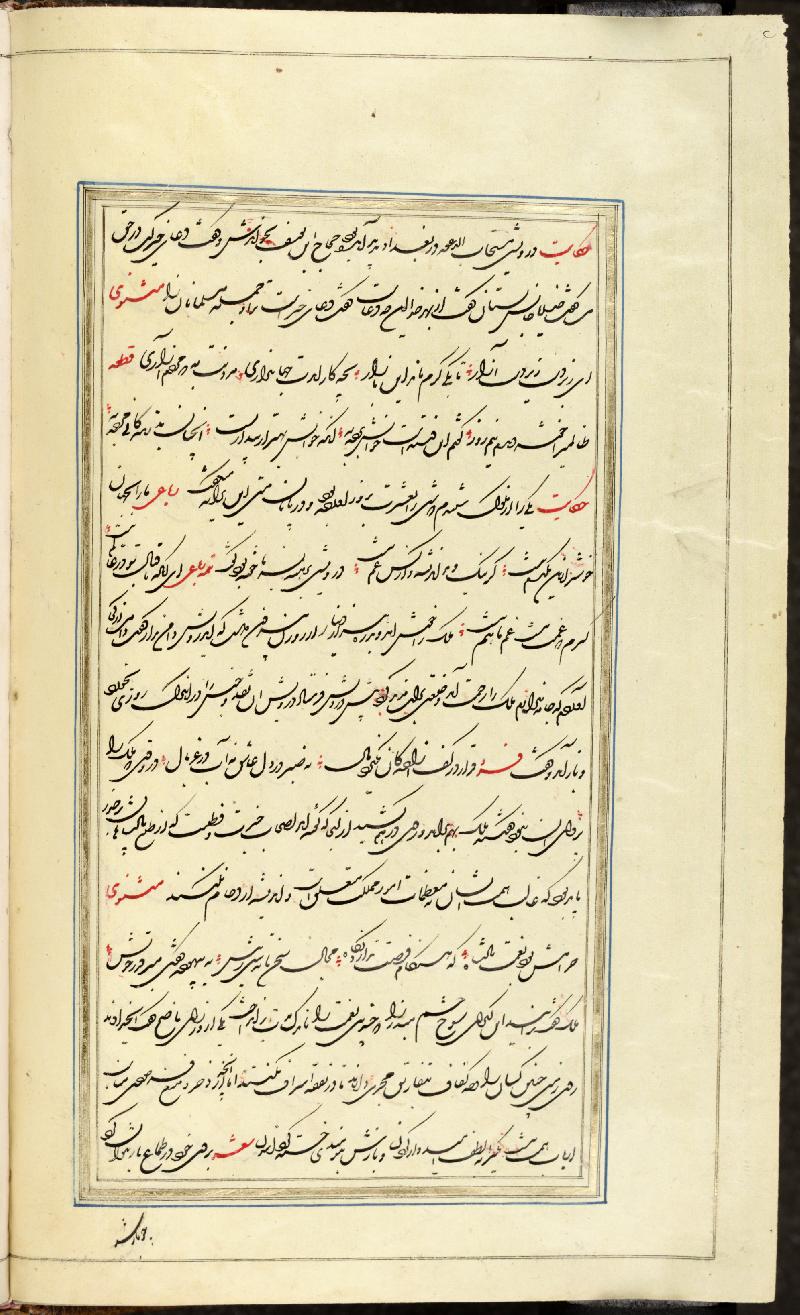 حکایت درویشی مستجاب الدعوه در بغداد پدید آمد حجاج یوسف بخواندش و گفت دعای خیری کن در حق
من گفت خدایا جانش بستان گفت از بهر خدا این چه دعاست گفت دعای خیرست ترا و جمله مسلمانان را مثنوی
ای زبردست زیردست آزار تا کی گرم ماند این بازار بچه کار آیدت جهانداری مردنت به که مردم آزاری قطعه
ظالمی را خفته دیدم نیم روز گفتم این فتنه است خوابش برده به آنکه خوابش بهتر از بیداریست آنچنان بد زندگانی مرده به
حکایت یکی را از ملوک شنیدم که شبی را بعشرت بروز آورده بود و در پایان مستی این میگفت رباعی ما را بجهان
خوشتر ازین یکدم نیست کز نیک و بد اندیشه و از کس غم نیست درویشی برهنه بسرما خفته بود گفت رباعی ای آنکه باقبال تو در عالم نیست
گیرم که غمت نیست غم ما هم نیست ملک را خوش آمد صره هزار دینار از روزن بیرون داشت که ای درویش دامن بدار گفت دامن از کجا
آورم که جامه ندارم ملک را رحمت آمد و خلعتی بر آن مزید کرد پیش درویش فرستاد درویش آن نقد و جنس را در اندک روزی بخورد
و باز آمد و گفت قرار در کف آزادگان نگیرد مال نه صبر در دل عاشق نه آب در غربال در وقتی که ملک را
پروای او نبود گفتند ملک بهم برآمد و روی درهم کشید از اینجا که گفته‌اند اصحاب خبرت و فطنت که از حدت پادشاهان بر حذر
باید بود که غالب همت ایشان بمعظمات امور مملکت متعلق است و اندیشه ازدحام عوام نکنند مثنوی
حرامش بود نعمت پادشاه که هنگام فرصت ندارد نگاه مجال سخن تا نبینی ز پیش به بیهوده گفتن مبر قدر خویش
ملک گفت برانید این گدای شوخ چشم مبذر را که چندین نعمت را باندک مدت برانداخت یکی از وزرای ناصح گفت ای خداوند
روی زمین چنین کسان را وجه کفاف بتفاریق مجری دارند تا در نفقه اسراف نکنند اما آنچه از زجر و منع فرمودی مناسب
ارباب همت نیست یکی را بلطف امیدوار کردن و بازش بنومیدی خسته کردن شعر بروی خود در طماع باز نتوان کرد
چو باز شد